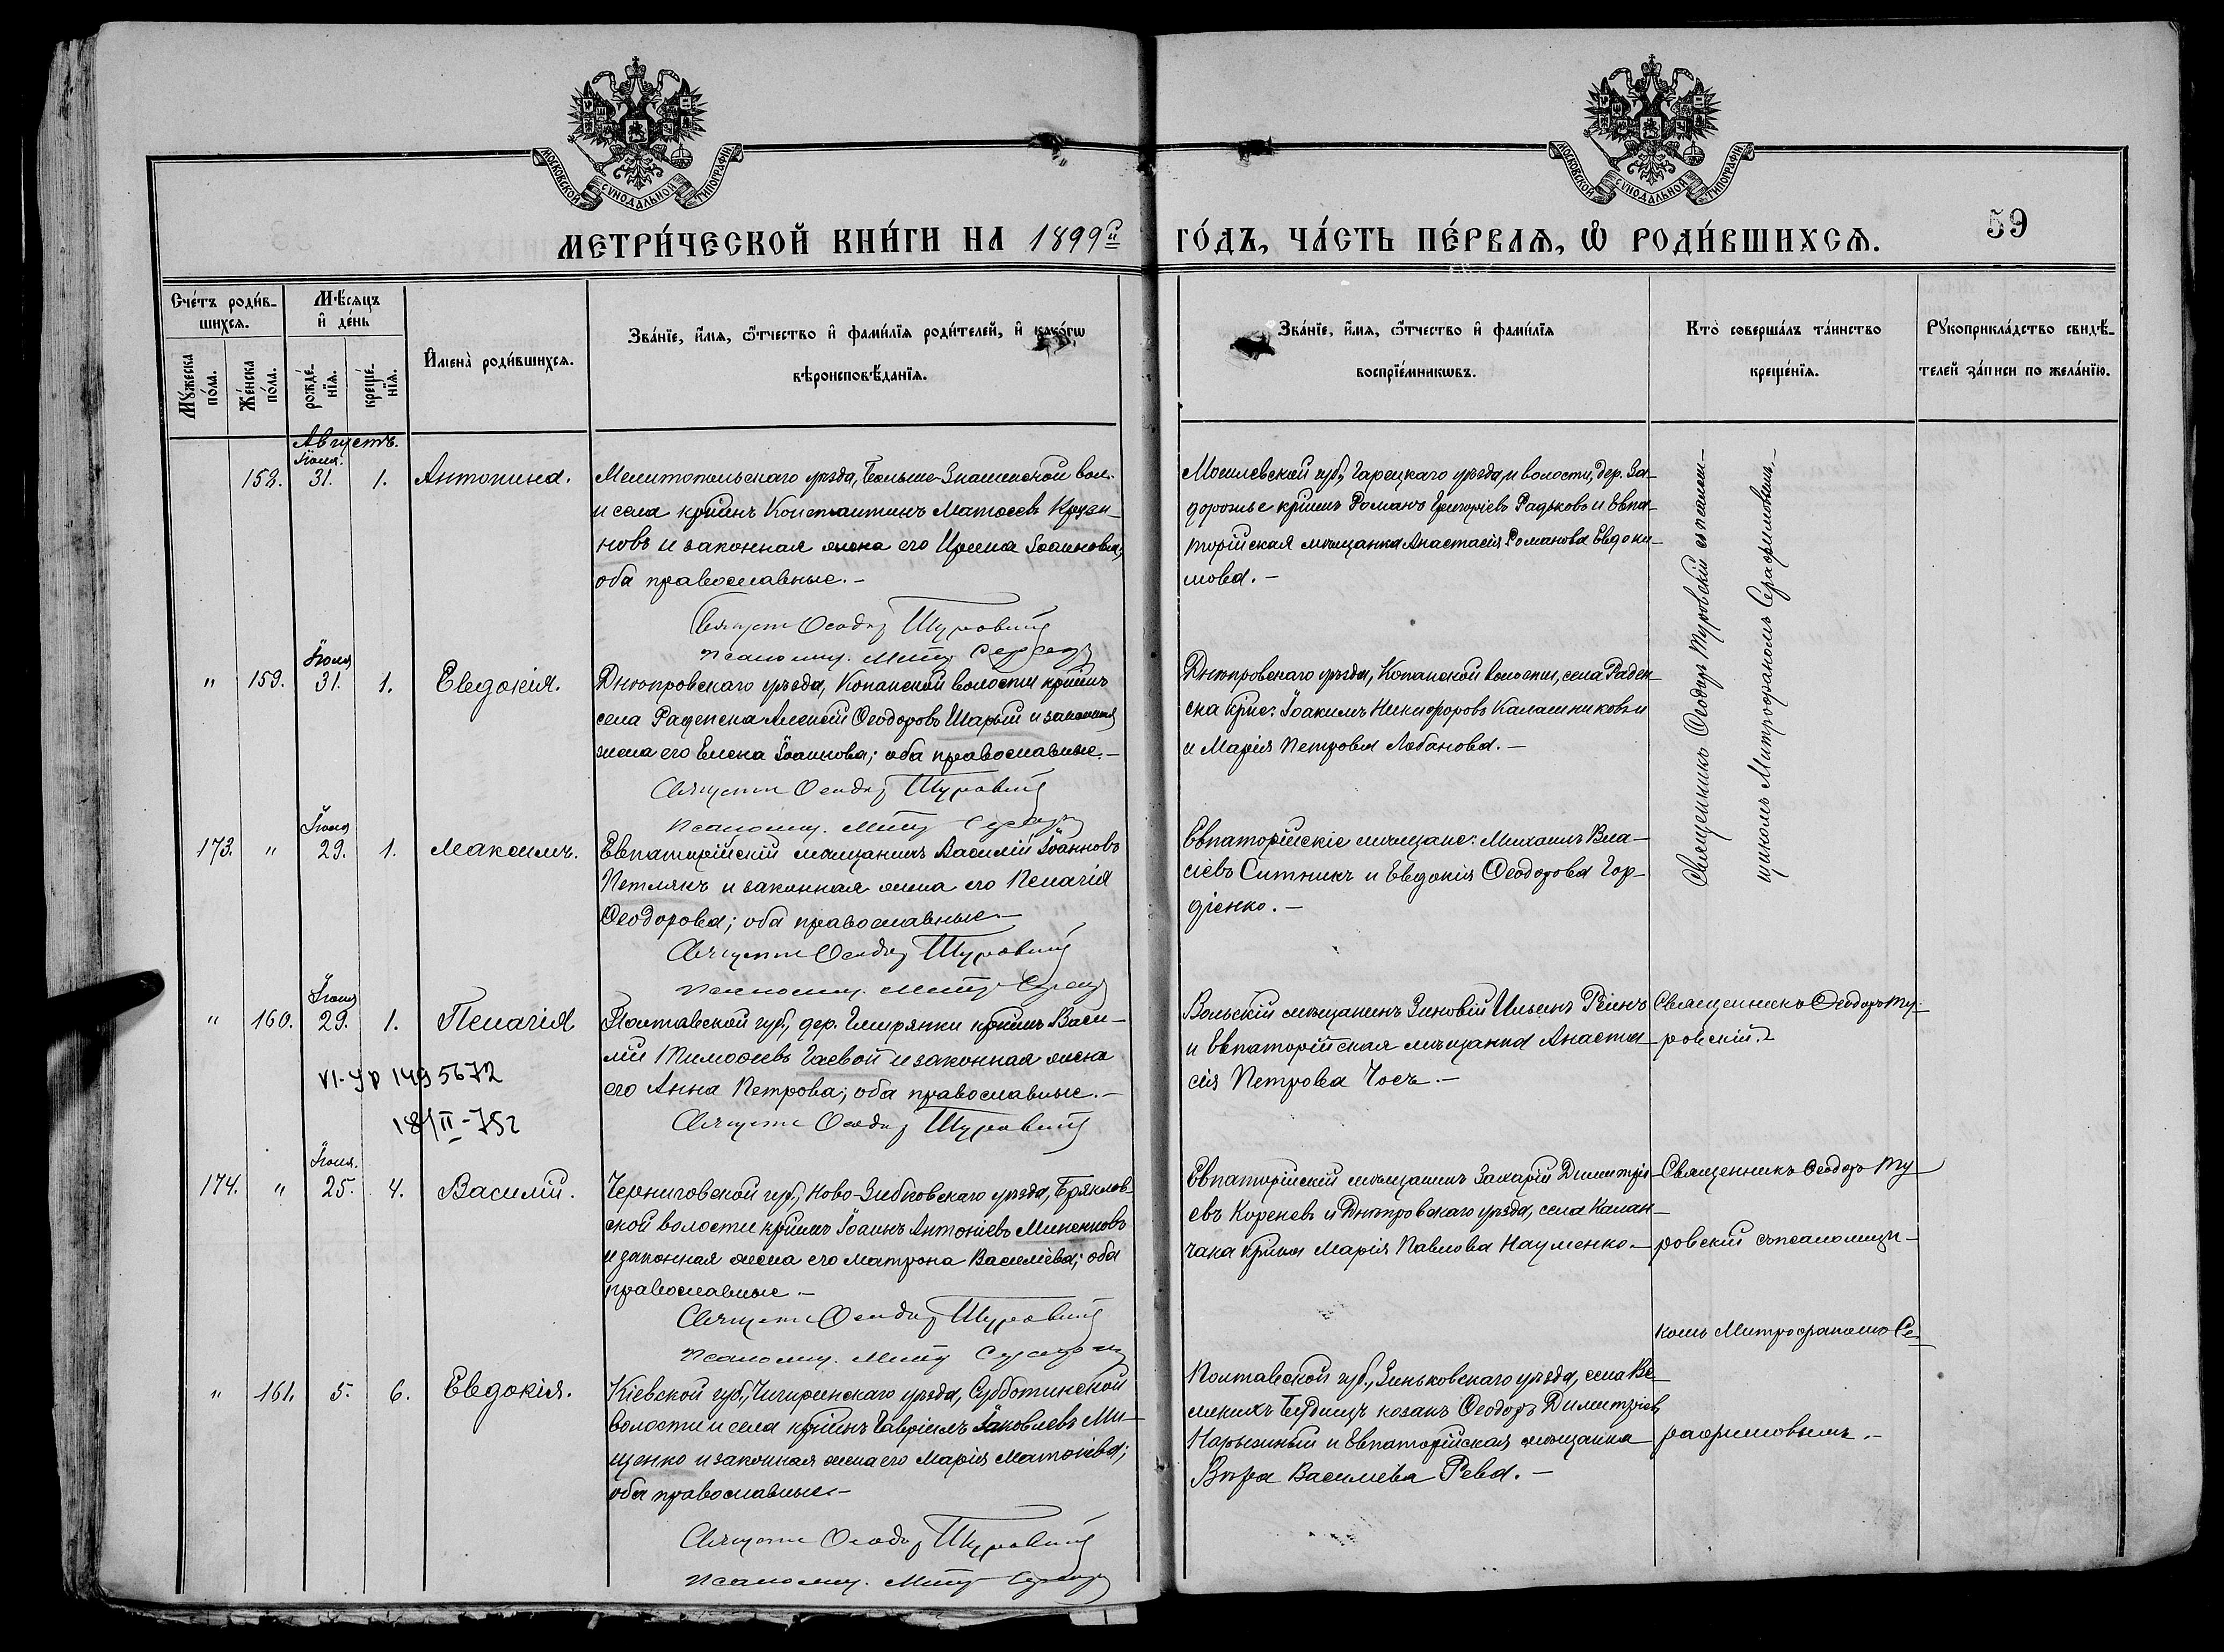 МОСКОВСКОЙ СУНОДАЛЬНОЙ ТИПОГРАФІИ
МОСКОВСКОЙ СУНОДАЛЬНОЙ ТИПОГРАФІИ
МЕТРИ́ЧЕСКОЙ КНИ́ГИ НА 1899й ГО́ДЪ, ЧА́СТЬ ПЕ́РВАЯ, Ѡ РОДИ́ВШИХСЯ.
59
Сче́тъ роди́в-
шихся.
Мѣ́сяцъ
и де́нь
Му́жеска по́ла.
Же́нска по́ла.
рожде́-
нїя.
креще́-
нїя.
Имена̀ роди́вшихся.
Зва́нїе, и́мя, ѻ́тчество и фами́лїя роди́телей, и како́гѡ
вѣроисповѣ́данїя.
Зва́нїе, и́мя, ѻ́тчество и фами́лїя
воспрїе́мникѡвъ.
Кто̀ соверша́лъ та́инство
креще́нїя.
Рукоприкла́дство свидѣ́-
телей за́писи по жела́нїю.
Августъ.
158. Іюля. 31. 1. Антонина.
Мелитопольскаго уѣзда, Больше-Знаменской вол.
и села крнинъ Константинъ Матѳеевъ Крузи-
новъ и законная жена его Ирина Іоаннова,
оба православные.-
Священ Ѳеодор Туровский
псаломщ. Митр Сераф
Могилевской губ, Гарецкаго уѣзда, и волости, дер. За-
дорожье крнинъ Романъ Григоріевъ Радьковъ и Евпа-
торійская мѣщанка Анастасія Романова Евдоки-
мова.-
Священникъ Ѳеодоръ Туровскій съ псалом-
щикомъ Митрофаномъ Серафимовымъ.-
" 159. Іюля 31. 1. Евдокія.
Днѣпровскаго уѣзда, Копанской волости крнинъ
села Раденска Алексій Ѳеодоровъ Шарый и законная
жена его Елена Іоаннова; оба православные.-
Священ Ѳеодор Туровский
псаломщ. Митр Сераф
Днѣпровскаго уѣзда, Копанской волости, села Раден-
ска крне: Іоакимъ Никифоровъ Калашниковъ и
и Марія Петрова Лобанова.-
173. " Іюля 29. 1. Максимъ.
Евпаторійскій мѣщанинъ Василій Іоанновъ
Петлякъ и законная жена его Пелагія
Ѳеодорова; оба православные.-
Священ Ѳеодор Туровский
псаломщ. Митр Сераф
Евпаторійскіе мѣщане: Михаилъ Вла-
сіевъ Ситникъ и Евдокія Ѳеодорова Гор-
діенко.-
" 160. Іюля 29. 1. Пелагія
Полтавской губ, дер. Гмирянки крнинъ Васи-
лій Тимоѳеевъ Гаевой и законная жена
его Анна Петрова; оба православные.-
Священ Ѳеодор Туровский
Вольскій мѣщанинъ Зиновій Ильинъ Реинъ
и Евпаторійская мѣщанка Анаста-
сія Петрова Чосъ.-
Священникъ Ѳеодоръ Ту-
ровскій.-
VI-УР 1495672
18/II-75г
174. " Іюля. 25. 4. Василій.
Черниговской губ, Ново-Зибковскаго уѣзда, Бряклов-
ской волости крнинъ Іоаннъ Антоніевъ Миненковъ
и законная жена его Матрона Василіева; оба
православные.-
Священ Ѳеодор Туровский
псаломщ. Митр Сераф
Евпаторійскій мѣщанинъ Захарій Димитрі-
евъ Кореневъ и Днѣпровскаго уѣзда, села Калан-
чака крнка Марія Павлова Науменко.-
Священникъ Ѳеодоръ Ту-
ровскій съ псаломщи-
комъ Митрофаномъ Се-
рафимовымъ.-
" 161. 5. 6. Евдокія.
Кіевской губ, Чигиринскаго уѣзда, Субботинской
волости и села крнинъ Гавріилъ Іаковлевъ Ми-
щенко и законная жена его Марія Матѳіева;
оба православные.-
Священ Ѳеодор Туровский
псаломщ. Митр Сераф
Полтавской губ., Зиньковскаго уѣзда, села Ве-
ликихъ Будищъ козакъ Ѳеодоръ Димитріев
Нарыжный и Евпаторійская мѣщанка
Вѣра Василіева Рева.-